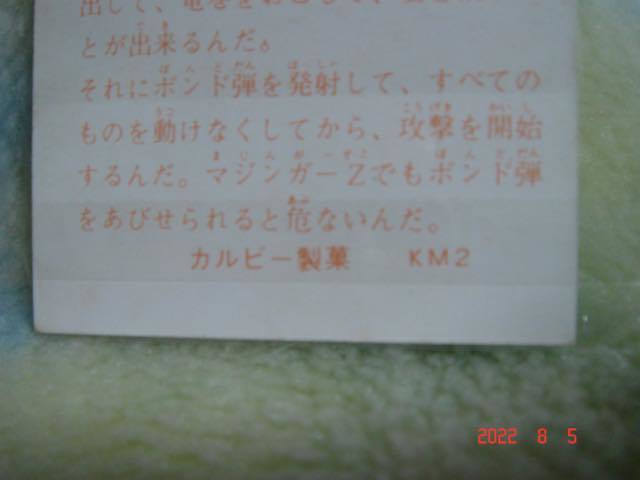 出して、竜巻をおこして、
とが出来るんだ。
それにボンド弾を発射して、すべての
ものを動けなくしてから、攻撃を開始
するんだ。マジンガーZでもボンド弾
をあびせられると危ないんだ。
カルビー製菓 KM2
2022 8 5